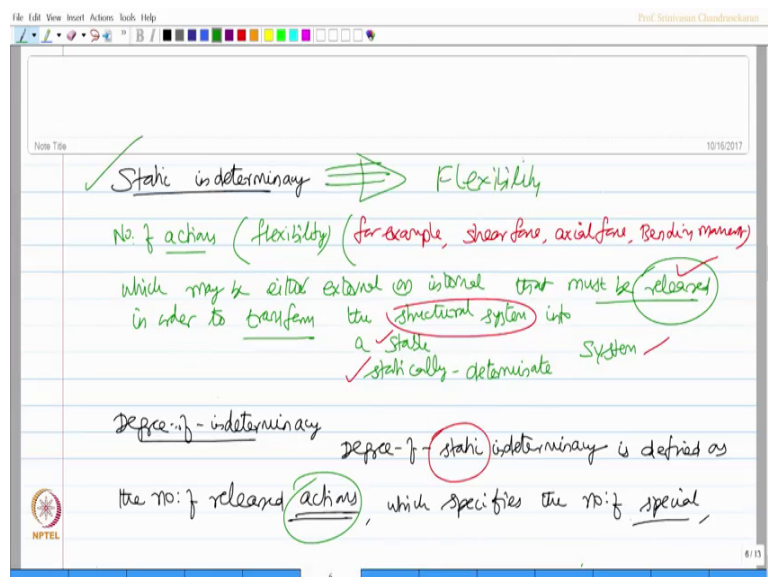 File Edit View Insert Actions Tools Help
Prof. Srinivasan Chandrasekaran
B I
Note Title
10/16/2017
Static indeterminacy ⇒ Flexibility
No: of actions (flexibility) (for example, shear force, axial force, Bending moment)
which may be either external (or) internal that must be released
in order to transform the structural system into
a stable
statically-determinate System
Degree-of-indeterminacy
Degree-of-static indeterminacy is defined as
the no: of released actions, which specifies the no: of special,
NPTEL
6/13